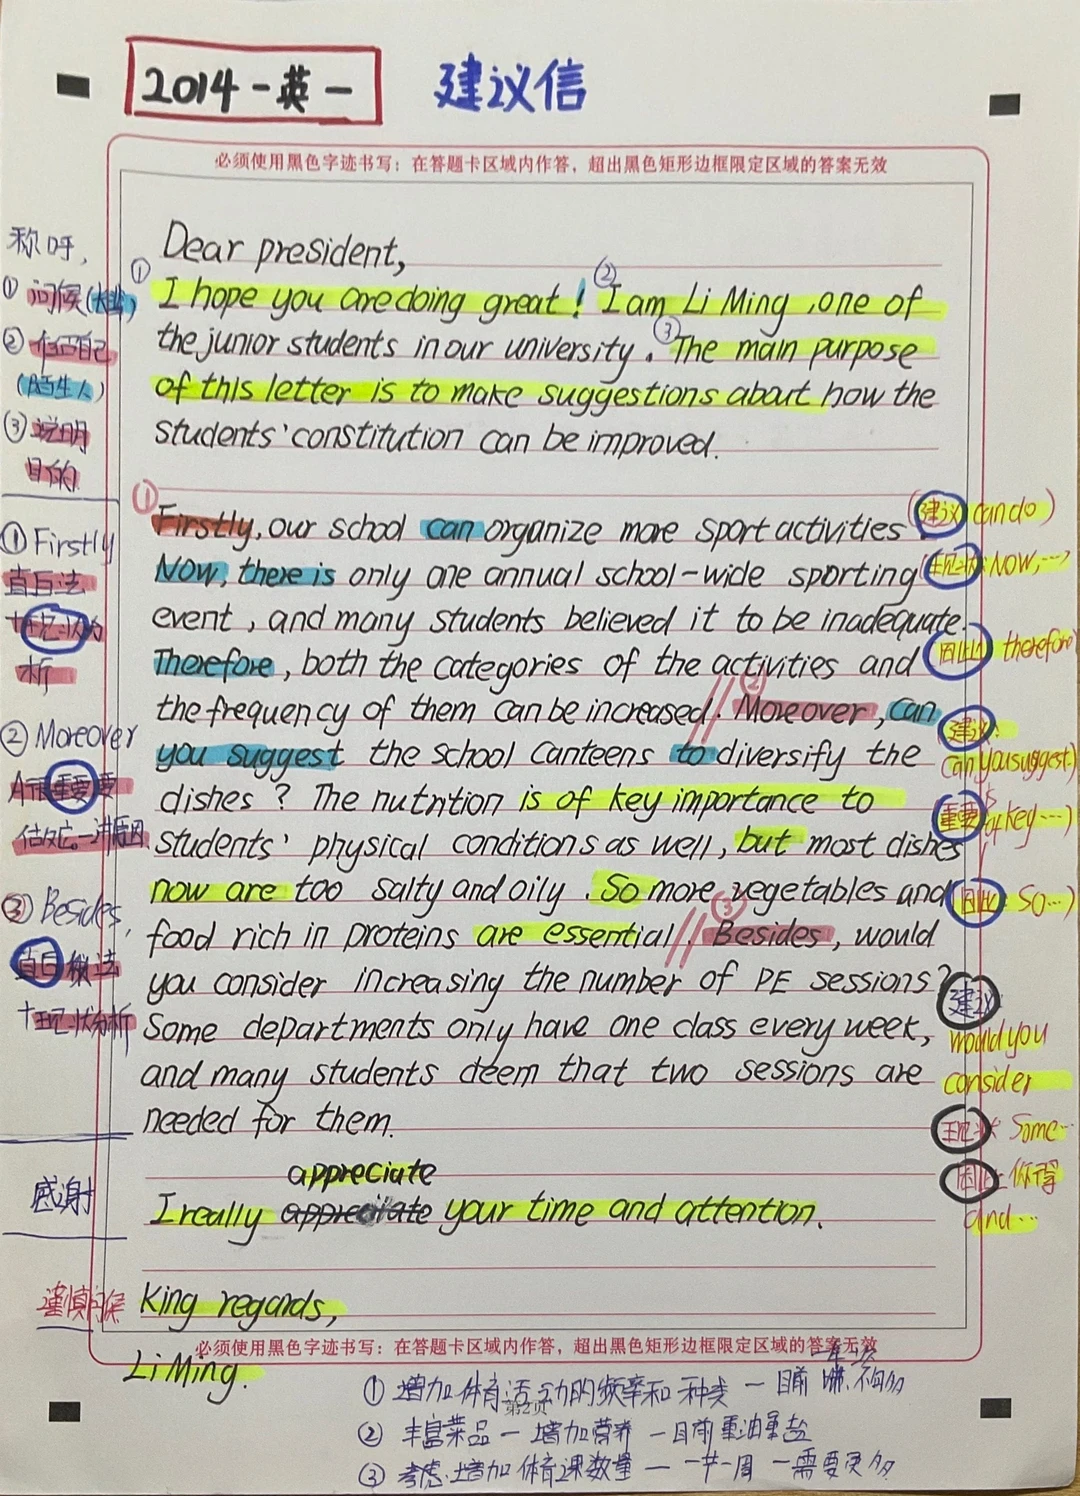 2014-英一
建议信
必须使用黑色字迹书写：在答题卡区域内作答，超出黑色矩形边框限定区域的答案无效
Dear president,
① I hope you are doing great! ② I am Li Ming, one of
the junior students in our university. ③ The main purpose
of this letter is to make suggestions about how the
students' constitution can be improved.
① Firstly, our school can organize more sport activities.
Now, there is only one annual school-wide sporting
event, and many students believed it to be inadequate.
Therefore, both the categories of the activities and
the frequency of them can be increased. // ② Moreover, can
you suggest the school canteens to diversify the
dishes? The nutrition is of key importance to
students' physical conditions as well, but most dishes
now are too salty and oily. So more vegetables and
food rich in proteins are essential. // ③ Besides, would
you consider increasing the number of PE sessions?
Some departments only have one class every week,
and many students deem that two sessions are
needed for them.
appreciate
I really appreciate your time and attention.
King regards,
必须使用黑色字迹书写：在答题卡区域内作答，超出黑色矩形边框限定区域的答案无效
Li Ming.
称呼,
① 问候
②
(陌生人)
③ 说明
目的
① Firstly
直白法
+现状分
析
② Moreover
重要
③ Besides,
直白做法
+现状分析
感谢
谨慎问候
(建议 can do)
现状: NOW,…
因此 therefore
建议:
can you suggest.)
重要 is
of key…)
因此: So…)
建议:
would you
consider
现状 Some…
因此
and…
① 增加体育活动的频率和种类 — 目前
第2页
② 丰富菜品 — 增加营养 — 目前重油重盐
③ 考虑增加体育课数量 — 一节一周 — 需要更多